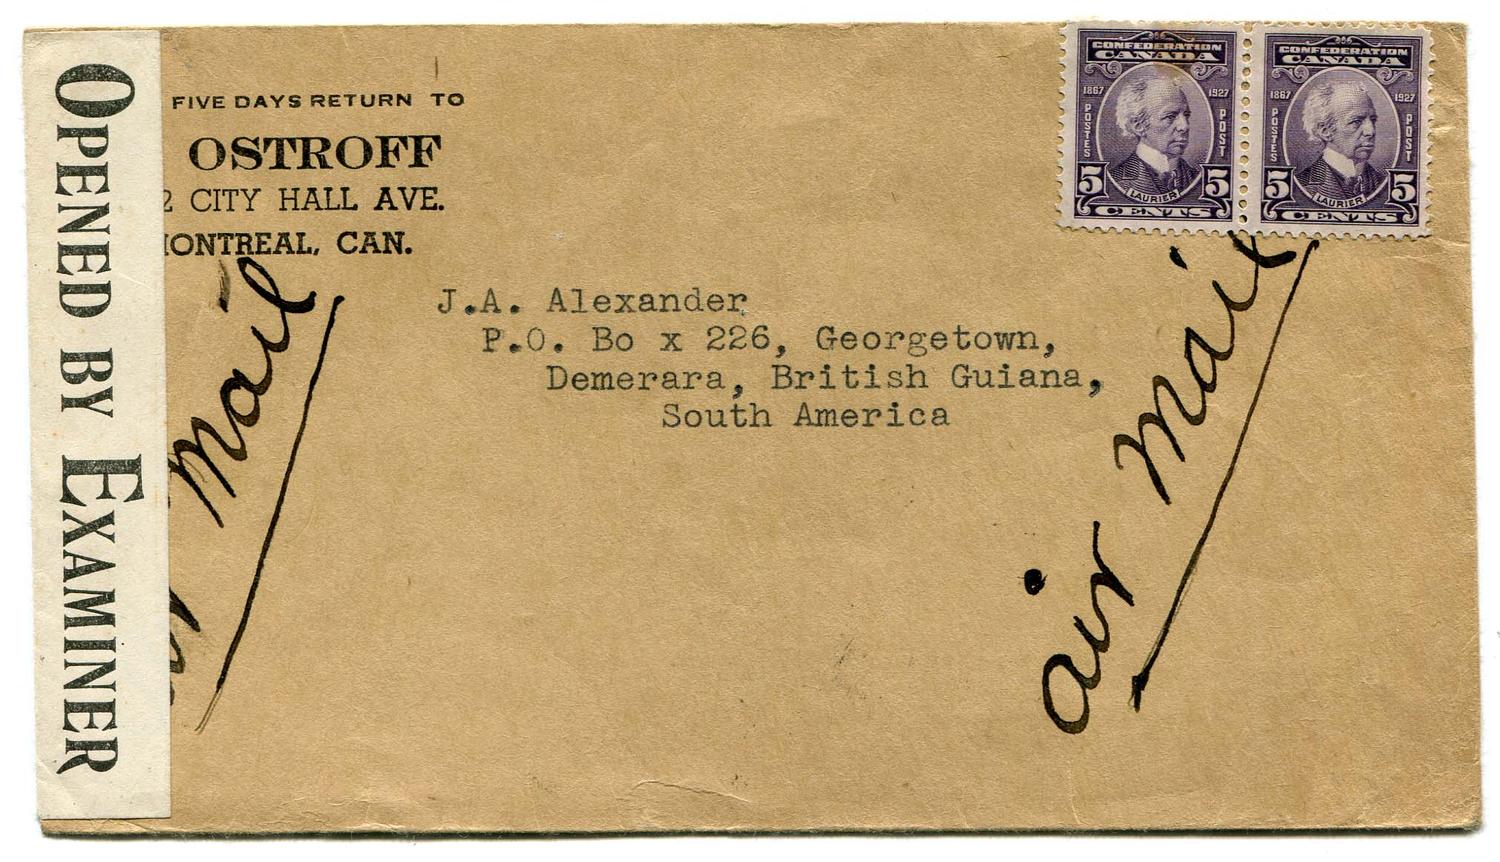 OPENED BY EXAMINER
FIVE DAYS RETURN TO
OSTROFF
2 CITY HALL AVE.
MONTREAL, CAN.
CONFEDERATION
CANADA
1867 1927
POSTES POST
LAURIER
5 5
CENTS
CONFEDERATION
CANADA
1867 1927
POSTES POST
LAURIER
5 5
CENTS
J.A. Alexander
P.O. Bo x 226, Georgetown,
Demerara, British Guiana,
South America
Mail
air Mail